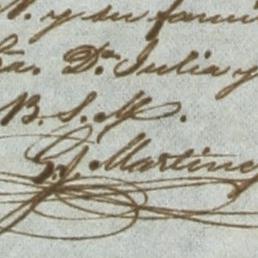 V. y su fami
Sra. Dª Julia y
B. S. M.
G. Martinez